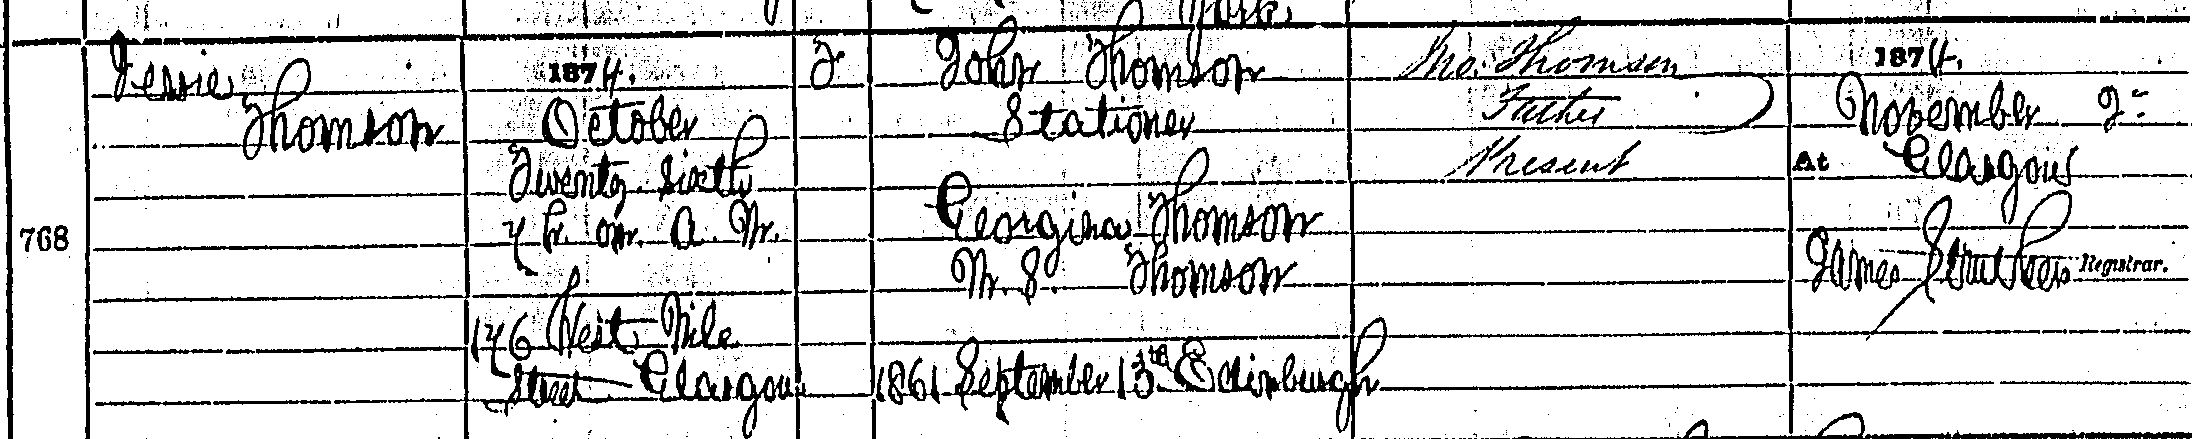 York
768
Jessie
Thomson
1874.
October
Twenty Sixth
7 h. om. A. M.
176 West Nile
Street Glasgow
F
John Thomson
Stationer
Georgina Thomson
M. S. Thomson
1861 September 13th Edinburgh
Jno. Thomson
Father
Present
1874.
November
At Glasgow
James Struthers Registrar.